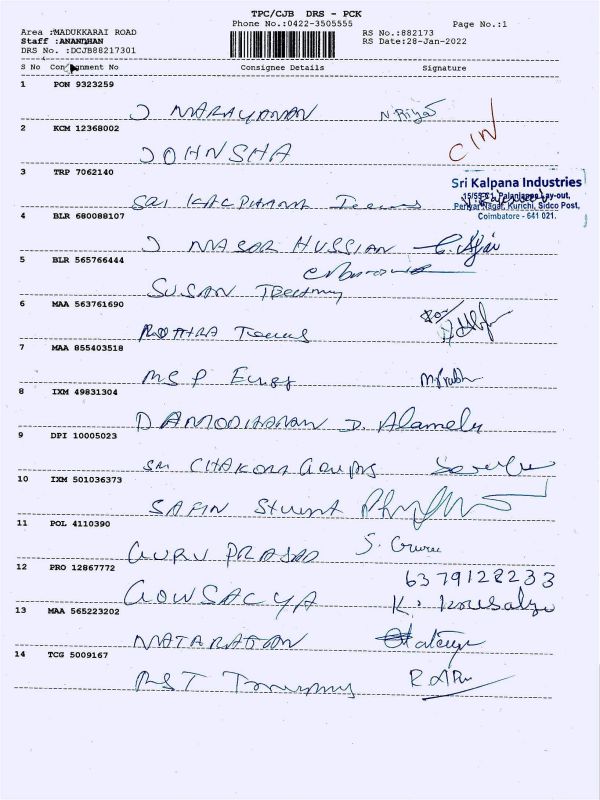 TPC/CJB DRS - PCK
Phone No.:0422-3505555 Page No.:1
Area :MADUKKARAI ROAD RS No.:882173
Staff :ANANDHAN RS Date:28-Jan-2022
DRS No. :DCJB88217301
S No Consignment No Consignee Details Signature
1 PON 9323259
J NARAYANAN N. Riyas
2 KCM 12368002
JOHNSHA CIN
3 TRP 7062140
Sri Kalpana Industries
15/53-E1, Palaniappa Lay-out,
Periyar Nagar, Kurichi, Sidco Post,
Coimbatore - 641 021.
SRI KALPHANA
4 BLR 680088107
J NASOR HUSSIAN
5 BLR 565766444
SUSAN
6 MAA 563761690
7 MAA 855403518
MS P
8 IXM 49831304
DAMODHARAN D. Alamelu
9 DPI 10005023
SRI CHAKORA
10 IXM 501036373
SAFIN
11 POL 4110390
GURU PRASAD S. Guru
12 PRO 12867772
6379128233
GOWSALYA K. Kousalya
13 MAA 565223202
NATARAJAN
14 TCG 5009167
RST